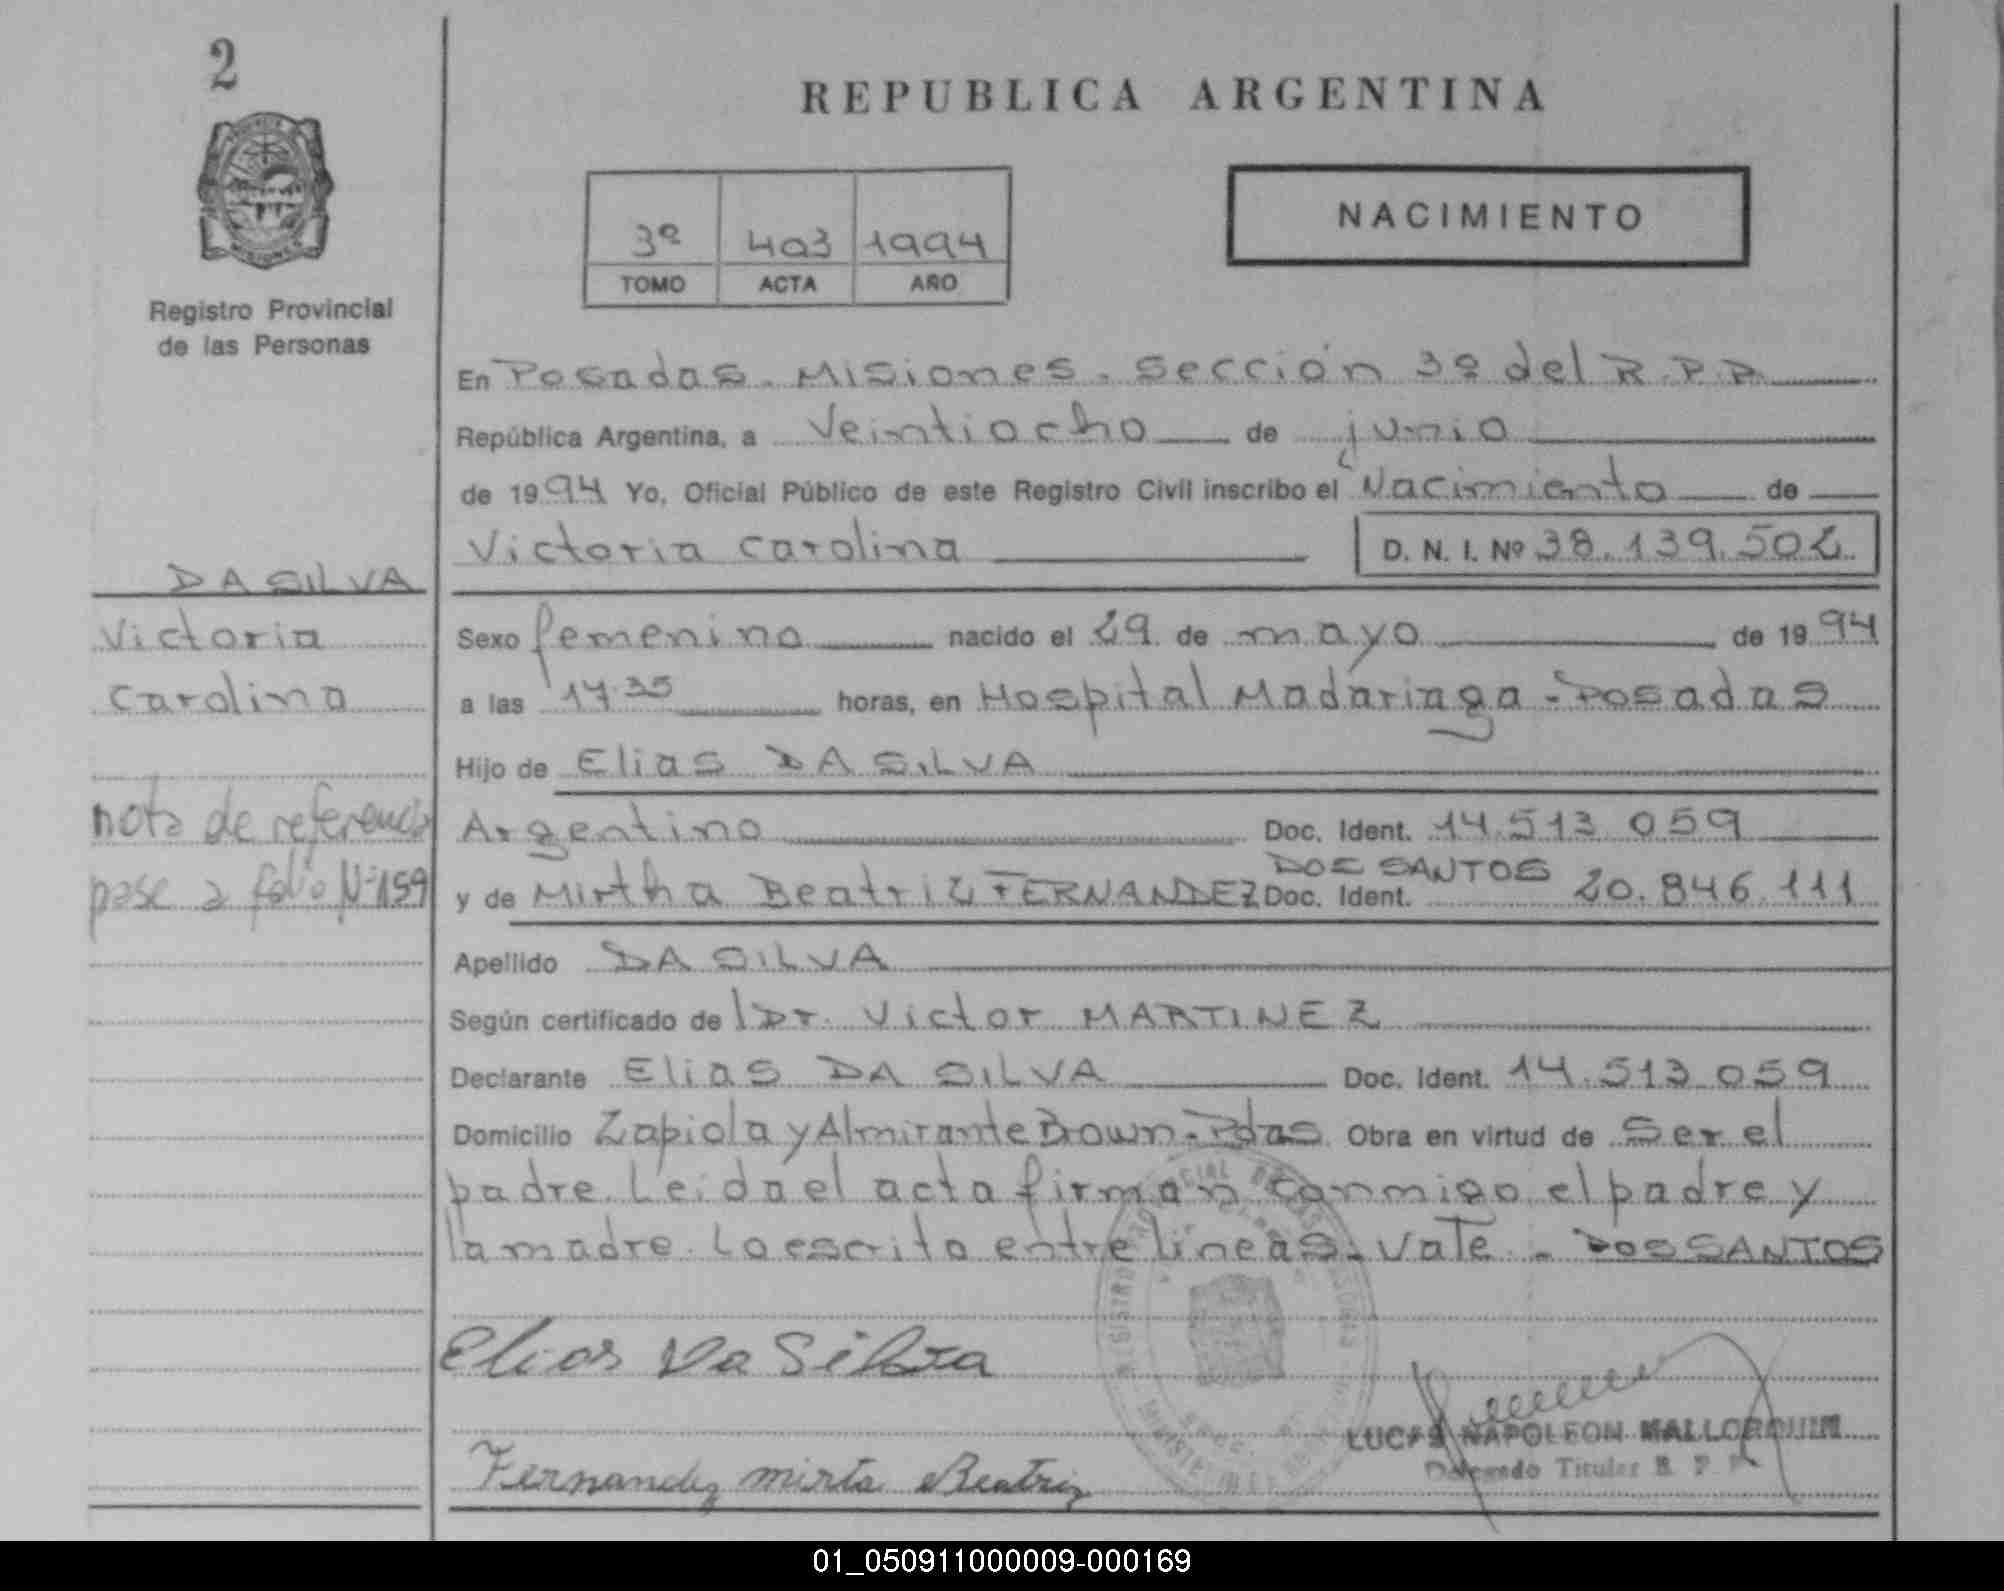 2
REPUBLICA ARGENTINA
NACIMIENTO
3º 403 1994
TOMO ACTA AÑO
Registro Provincial
de las Personas
En Posadas. Misiones. Sección 3º del R.P.P.
República Argentina, a Veintiocho de junio
de 1994 Yo, Oficial Público de este Registro Civil inscribo el Nacimiento de
Victoria Carolina D. N. I. Nº 38.139.502
DA SILVA
Victoria
Carolina
nota de referencia
pase a folio Nº 159
Sexo femenino nacido el 29 de mayo de 1994
a las 17.35 horas, en Hospital Madariaga - Posadas
Hijo de Elias DA SILVA
Argentino Doc. Ident. 14.513.059
DOS SANTOS
y de Mirtha Beatriz FERNANDEZ Doc. Ident. 20.846.111
Apellido DA SILVA
Según certificado de Dr. Victor MARTINEZ
Declarante Elias DA SILVA Doc. Ident. 14.513.059
Domicilio Zapiola y Almirante Brown - Pdas. Obra en virtud de Ser el
padre. Leida el acta firman conmigo el padre y
la madre. Lo escrito entre lineas. Vale - DOS SANTOS
Elias Da Silva
LUCAS NAPOLEON MALLORQUIN
Delegado Titular R. P. P.
Fernandez mirta Beatriz
01_050911000009-000169